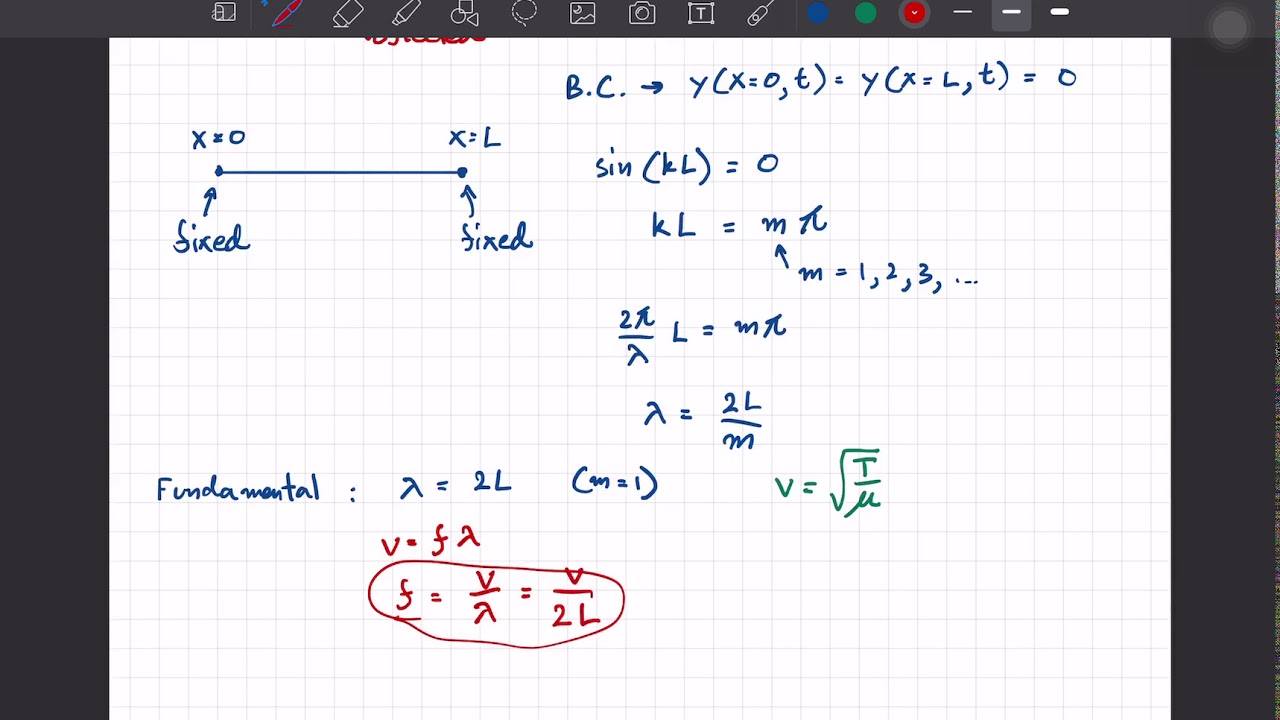 B.C. → y(x=0,t) = y(x=L,t) = 0
x=0
x=L
fixed
fixed
sin(kL) = 0
kL = mπ
m = 1, 2, 3, ...
2π/λ L = mπ
λ = 2L/m
Fundamental : λ = 2L (m=1)
v = √(T/μ)
v = fλ
f = v/λ = v/2L